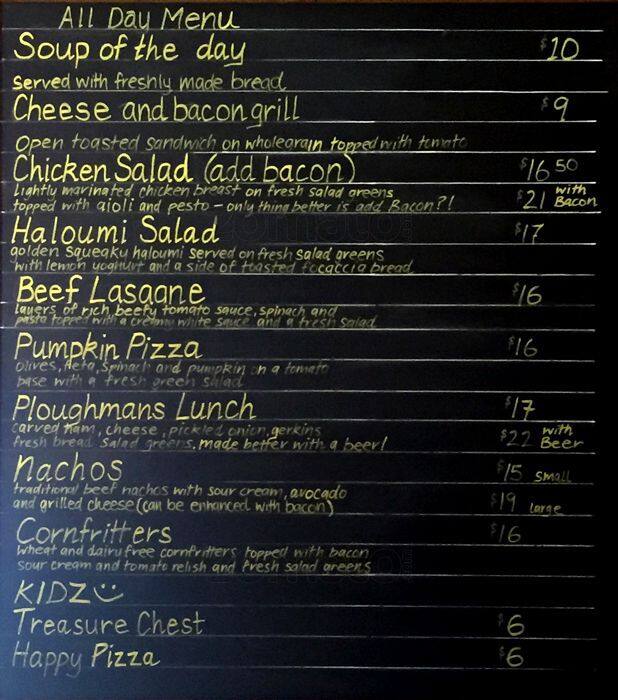 All Day Menu
Soup of the day $10
Served with freshly made bread
Cheese and bacon grill $9
Open toasted sandwich on wholegrain topped with tomato
Chicken Salad (add bacon) $16 50
Lightly marinated chicken breast on fresh salad greens
topped with aioli and pesto - only thing better is add Bacon?! $21 with Bacon
Haloumi Salad $17
golden squeaky haloumi served on fresh salad greens
with lemon yoghurt and a side of toasted focaccia bread
Beef Lasagne $16
layers of rich beefy tomato sauce, spinach and
pasta topped with a creamy white sauce and a fresh salad
Pumpkin Pizza $16
olives, feta, spinach and pumpkin on a tomato
base with a fresh green salad
Ploughmans Lunch $17
carved ham, cheese, pickled onion, gerkins
fresh bread, salad greens, made better with a beer! $22 with Beer
Nachos $15 small
traditional beef nachos with sour cream, avocado
and grilled cheese (can be enhanced with bacon) $19 large
Cornfritters $16
wheat and dairy free cornfritters topped with bacon
sour cream and tomato relish and fresh salad greens
KIDZ
Treasure Chest $6
Happy Pizza $6